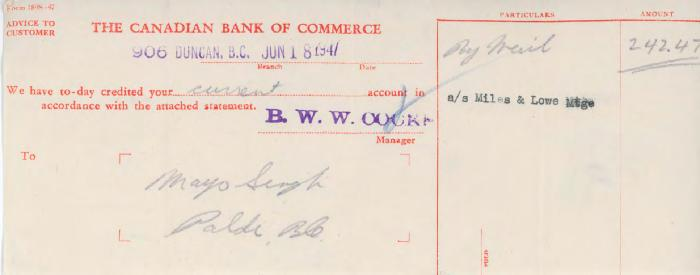 Form 180R-47
ADVICE TO
CUSTOMER
THE CANADIAN BANK OF COMMERCE
906 DUNCAN, B.C. JUN 18 1947
Branch Date
We have to-day credited your current account in
accordance with the attached statement.
B. W. W. COCKE
Manager
To
Mayo Singh
Paldi, B.C.
PARTICULARS AMOUNT
By 242.47
a/s Miles & Lowe Mtge